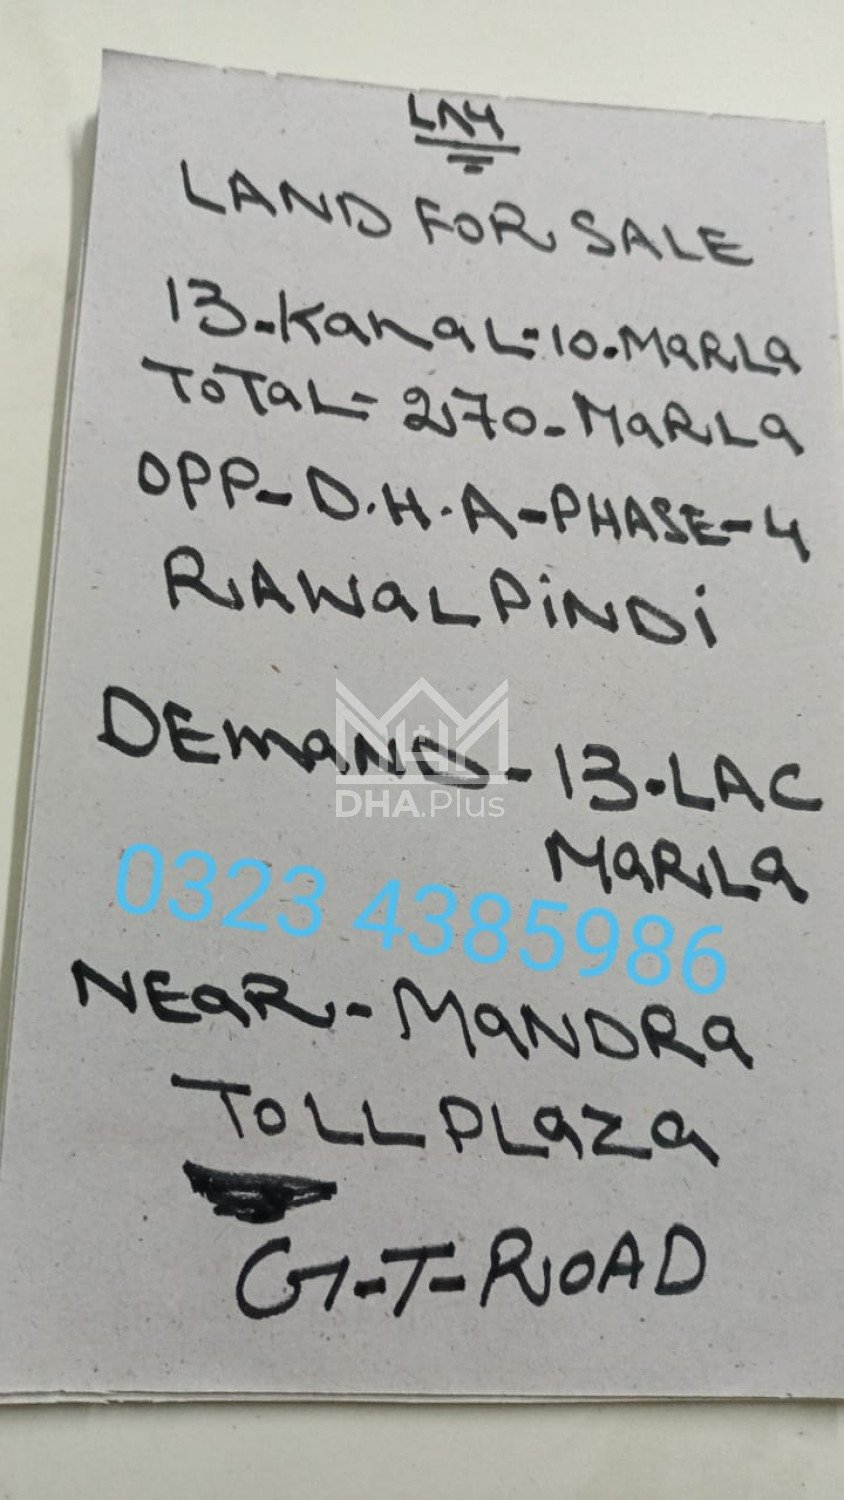 LAND FOR SALE
13-KaNaL-10-MaRLa
ToTaL- 270-MaRLa
OPP-D.H.A-PHASE-4
RAWaLPiNDi
DEmaND-13-LAC
DHA.Plus
MaRLa
0323 4385986
NEaR-MaNDRa
ToLLPLaZa
G-T-ROAD